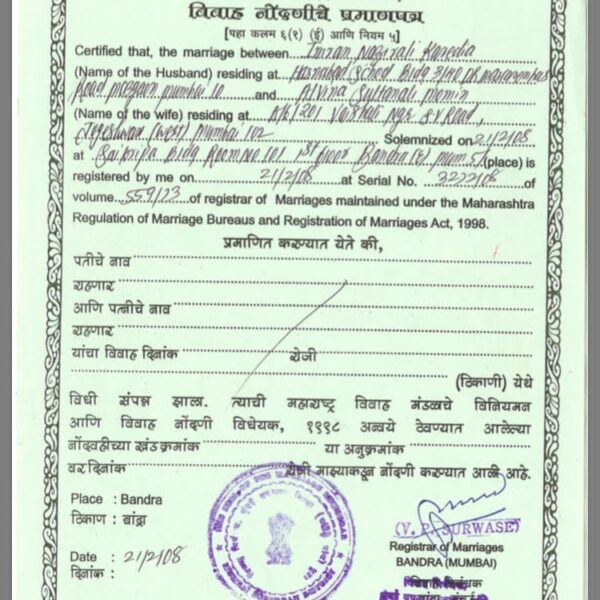 विवाह नोंदणीचे प्रमाणपत्र
[पहा कलम ६(१) (ई) आणि नियम ५]
Certified that, the marriage between Imran
(Name of the Husband) residing at
Road Mumbai 10 and Alvina Sultanali Momin
(Name of the wife) residing at A/6/201 Vaishali Ngr S V Road,
(West) Mumbai 102 Solemnized on 21/2/08
at Bldg Room No 101 1st floor Bandra (E) Mum 51 (place) is
registered by me on 21/2/08 at Serial No. 3222/08 of
volume of registrar of Marriages maintained under the Maharashtra
Regulation of Marriage Bureaus and Registration of Marriages Act, 1998.
प्रमाणित करण्यात येते की,
पतीचे नाव
राहणार
आणि पत्नीचे नाव
राहणार
यांचा विवाह दिनांक रोजी
(ठिकाणी) येथे
विधी संपन्न झाला. त्याची महाराष्ट्र विवाह मंडळाचे विनियमन
आणि विवाह नोंदणी विधेयक, १९९८ अन्वये ठेवण्यात आलेल्या
नोंदवहीच्या खंड क्रमांक या अनुक्रमांक
वर दिनांक रोजी माझ्याकडून नोंदणी करण्यात आली आहे.
Place : Bandra
ठिकाण : बांद्रा
(V. P. SURWASE)
Registrar of Marriages
BANDRA (MUMBAI)
Date : 21/2/08
दिनांक :
विवाह निबंधक